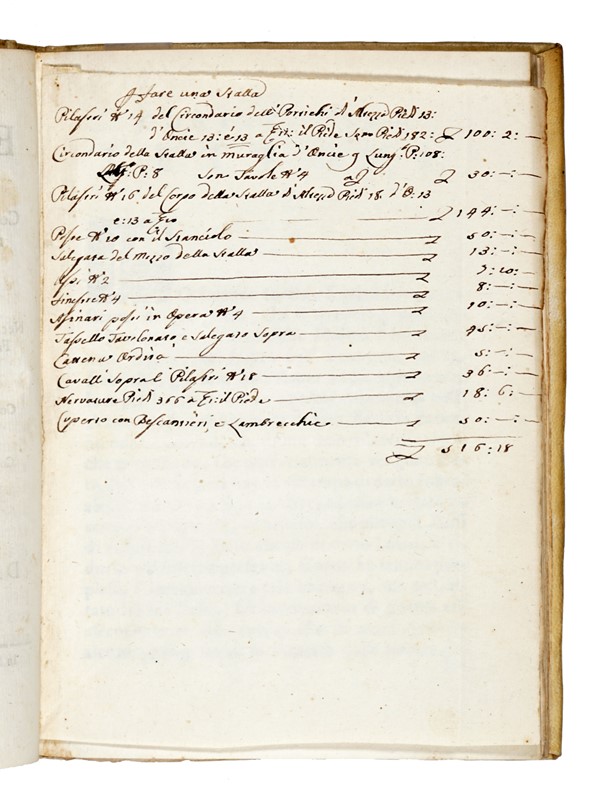 p fare una Stalla
Pilastri N° 14 del Circondario delli Portichi d'Altezza Piedi 13:
d'Oncie 13: é 13 a il Piede Sono Piedi 182: £ 100: 2: —
Circondario della Stalla in Muraglia d'Oncie 9 Lung.a P: 108:
P: 8 Sono Tavole N° 4 a £ 30: —: —
Pilastri N° 16 del Corpo della Stalla d'Altezza Piedi 18 d'O: 13
e: 13 a £ 144: —: —
Poste N° 20 con il Stanciolo £ 50: —: —
Salegata del Mezzo della Stalla £ 13: —: —
Ussi N° 2 £ 7: 10: —
Finestre N° 4 £ 8: —: —
Asinari posti in Opera N° 4 £ 10: —: —
Tassello Tavolonato, e Salegato Sopra £ 45: —: —
Cattena Ordita £ 5: —: —
Cavalli Sopra l Pilastri N° 18 £ 36: —: —
Nervature Piedi 366 a il Piede £ 18: 6: —
Cuperto con Bescantieri, e Lambrecchie £ 50: —: —
£ 516: 18